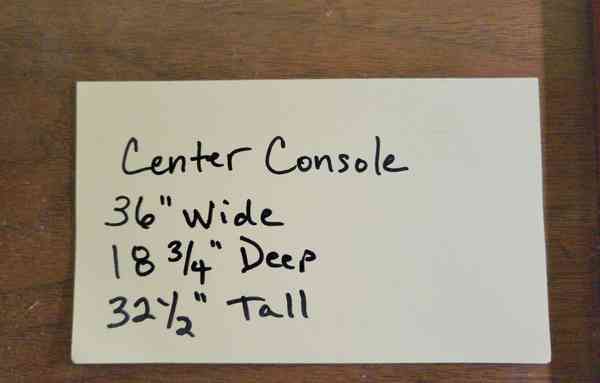 Center Console
36" Wide
18 3/4" Deep
32 1/2" Tall